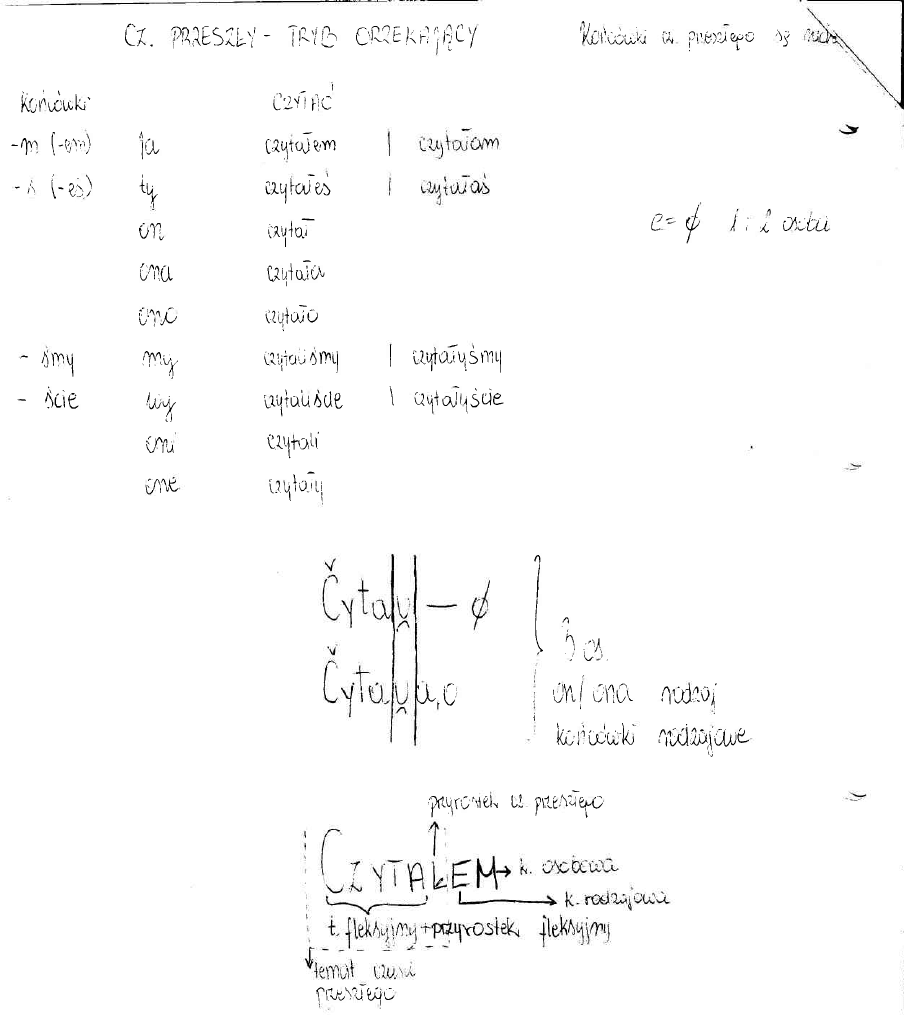 CZ. PRZESZŁY - TRYB ORZEKAJĄCY
Końcówki cz. przeszłego są
Końcówki CZYTAĆ
-m (-em) ja czytałem | czytałam
-ś (-eś) ty czytałeś | czytałaś
e = ø 1 i 2 osoba
on czytał
ona czytała
ono czytało
- śmy my czytaliśmy | czytałyśmy
- ście wy czytaliście | czytałyście
oni czytali
one czytały
Čytau̯ — ø
3 os.
Čytau̯a,o
on/ona rodzaj
końcówki rodzajowe
przyrostek cz. przeszłego
CZYTAŁEM → k. osobowa
→ k. rodzajowa
t. fleksyjny + przyrostek fleksyjny
temat czasu
przeszłego